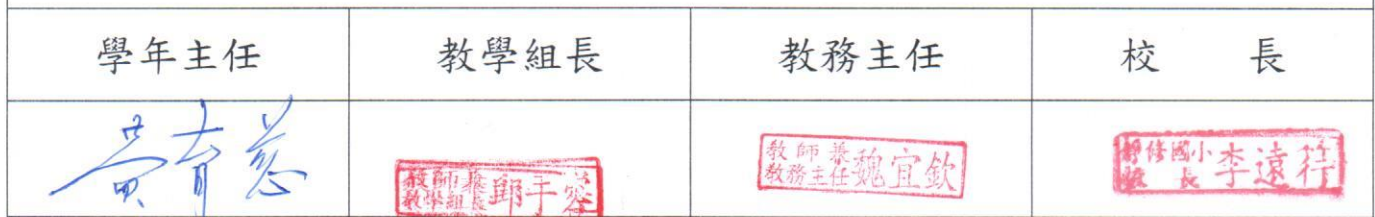 學年主任 教學組長 教務主任 校長
黃育慈
教師兼
教學組長 邱于容
教師兼
教務主任 魏宜欽
靜修國小
校長 李遠行